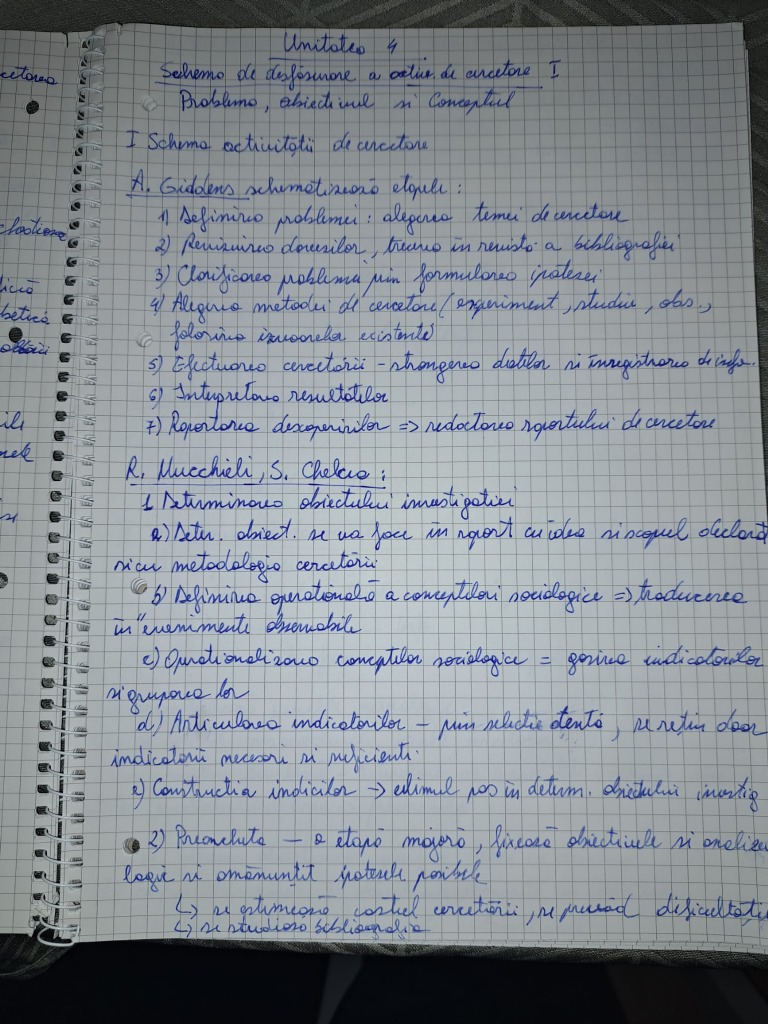 Unitatea 4
Schema de desfăsurare a activ. de cercetare I
Problema, obiectivul si Conceptul
I Schema activitătii de cercetare
A. Giddens schematizează etapele :
1) Definirea problemei : alegerea temei de cercetare
2) Revizuirea dovezilor, trecerea în revistă a bibliografiei
3) Clarificarea problemei prin formularea ipotezei
4) Alegerea metodei de cercetare (experiment, studiu, obs.,
folosirea izvoarelor existente)
5) Efectuarea cercetării - strangerea datelor si înregistrarea de info.
6) Interpretarea rezultatelor
7) Raportarea descoperirilor => redactarea raportului de cercetare
R. Mucchieli, S. Chelcea :
1. Determinarea obiectului investigatiei
a) Deter. obiect. se va face în raport cu idea si scopul declarat
si cu metodologia cercetării
b) Definirea operatională a conceptelor sociologice => traducerea
in "evenimente observabile
c) Operationalizarea conceptelor sociologice = gasirea indicatorilor
si gruparea lor
d) Articularea indicatorilor - prin selectie atentă, se retin doar
indicatorii necesari si suficienti.
e) Constructia indicilor -> ultimul pas în determ. obiectului investig
2) Preancheta - o etapă majoră, fixează obiectivele si analizea
logic si amănuntit ipotezele posibile
↳ se estimează costul cercetării, se prevăd dificultăti
↳ se studiaza bibliografia
cetarea
ică
betică
ile
si